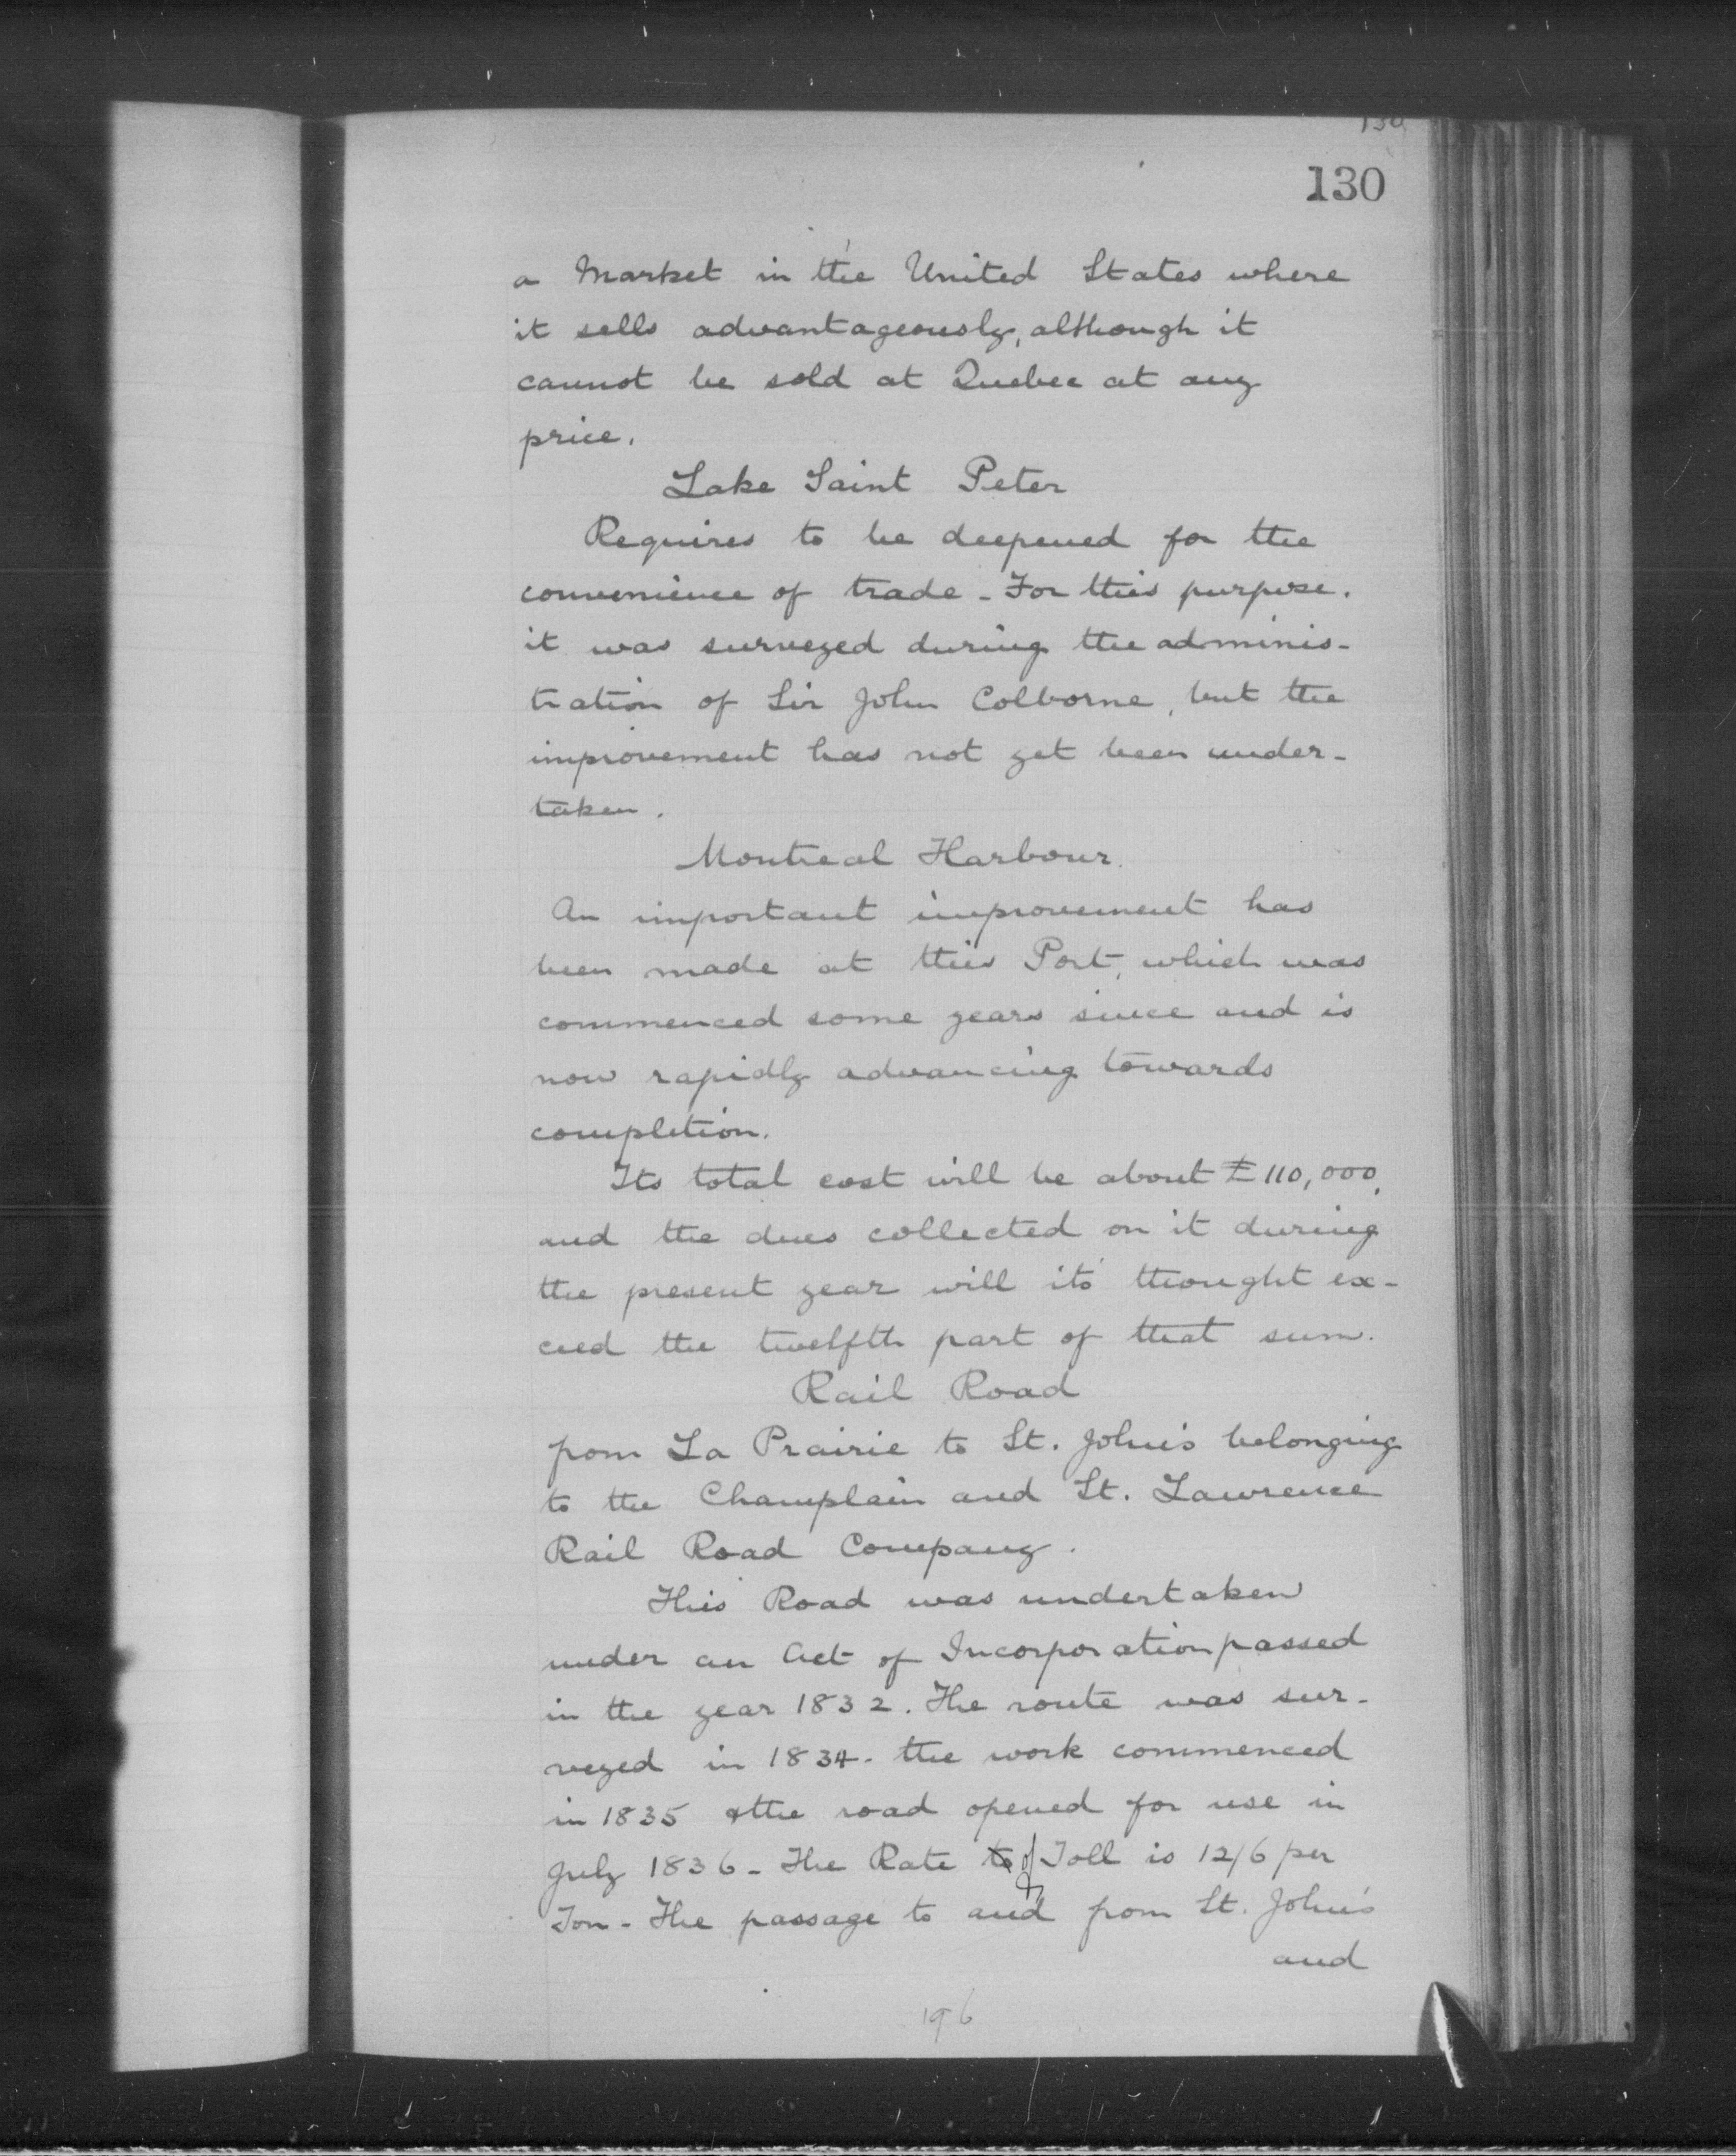 130
130
a Market in the United States where
it sells advantageously, although it
cannot be sold at Quebec at any
price.
Lake Saint Peter
Requires to be deepened for the
convenience of trade - For this purpose.
it was surveyed during the adminis-
tration of Sir John Colborne, but the
improvement has not yet been under-
taken.
Montreal Harbour.
An important improvement has
been made at this Port, which was
commenced some years since and is
now rapidly advancing towards
completion.
Its total cost will be about £110,000,
and the dues collected on it during
the present year will its thought ex-
ceed the twelfth part of that sum.
Rail Road
from La Prairie to St. John's belonging
to the Champlain and St. Lawrence
Rail Road Company.
This Road was undertaken
under an Act of Incorporation passed
in the year 1832. The route was sur-
veyed in 1834. the work commenced
in 1835 & the road opened for use in
July 1836 - The Rate to of Toll is 12/6 per
Ton - The passage to and from St. John's
and
196